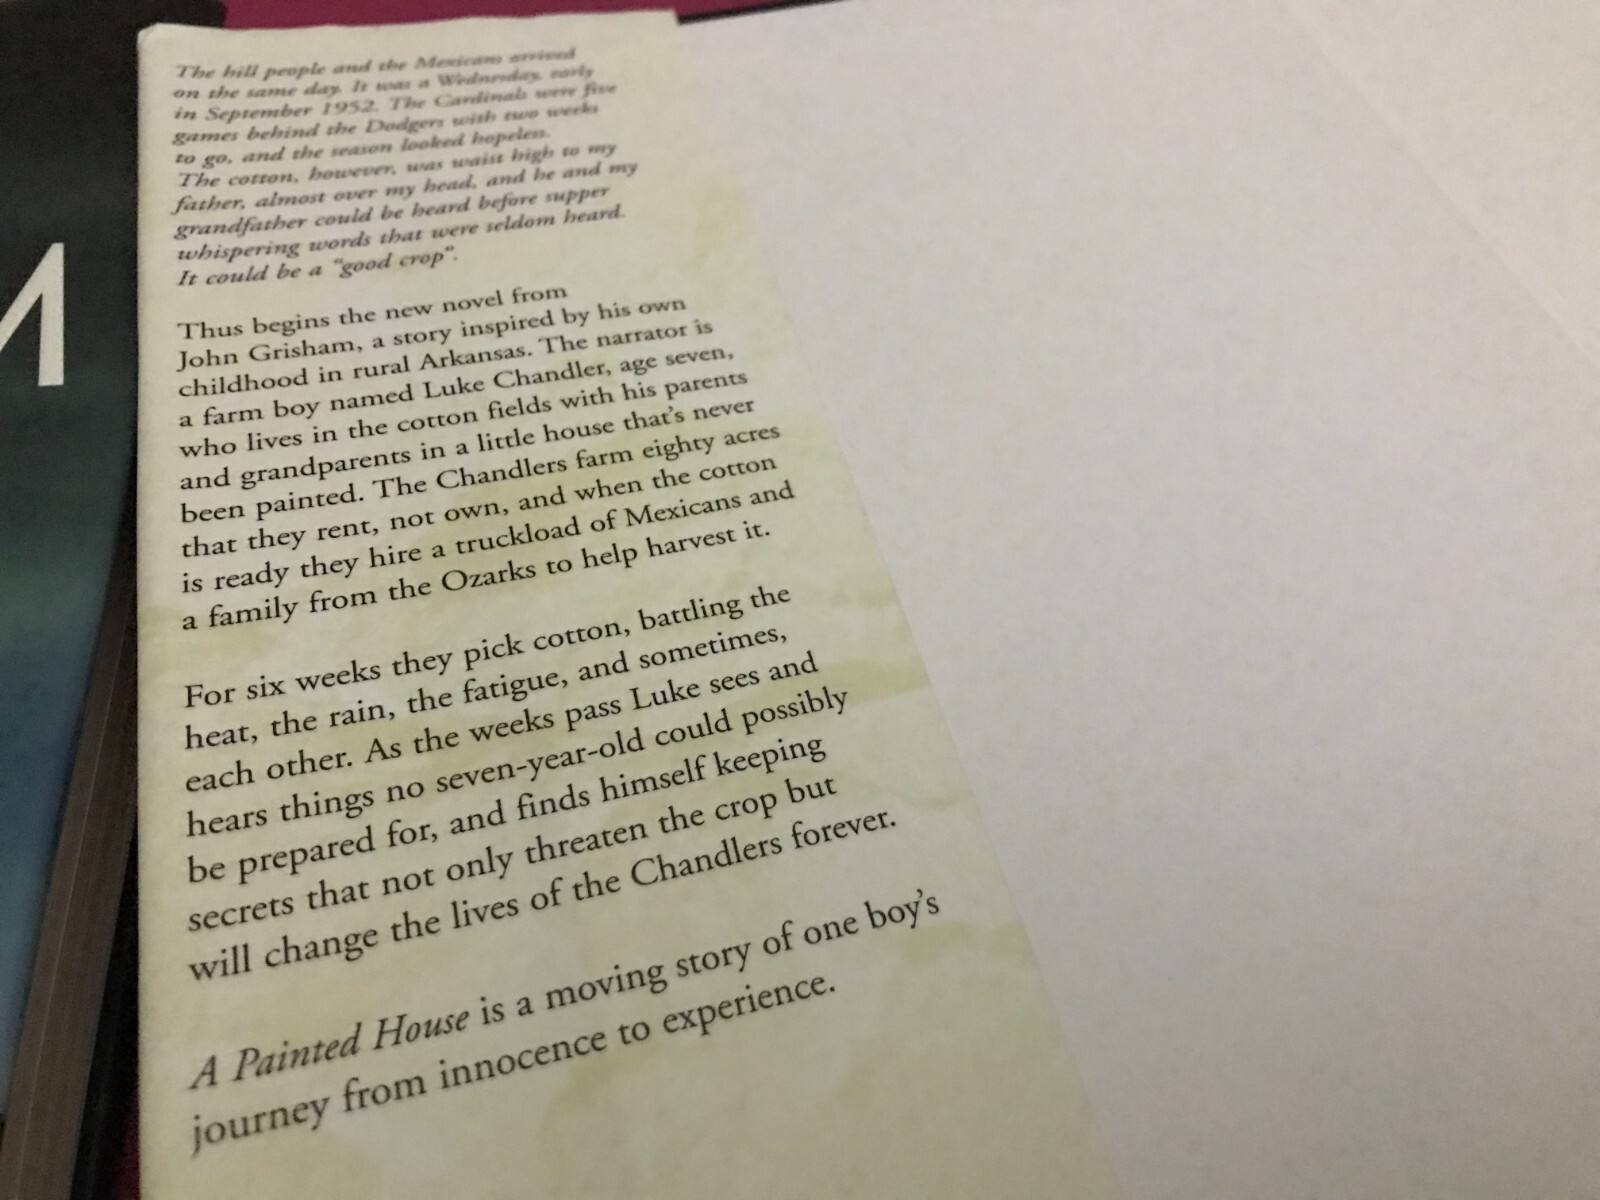 The hill people and the Mexicans arrived
on the same day. It was a Wednesday, early
in September 1952. The Cardinals were five
games behind the Dodgers with two weeks
to go, and the season looked hopeless.
The cotton, however, was waist high to my
father, almost over my head, and he and my
grandfather could be heard before supper
whispering words that were seldom heard.
It could be a “good crop”.
Thus begins the new novel from
John Grisham, a story inspired by his own
childhood in rural Arkansas. The narrator is
a farm boy named Luke Chandler, age seven,
who lives in the cotton fields with his parents
and grandparents in a little house that’s never
been painted. The Chandlers farm eighty acres
that they rent, not own, and when the cotton
is ready they hire a truckload of Mexicans and
a family from the Ozarks to help harvest it.
For six weeks they pick cotton, battling the
heat, the rain, the fatigue, and sometimes,
each other. As the weeks pass Luke sees and
hears things no seven-year-old could possibly
be prepared for, and finds himself keeping
secrets that not only threaten the crop but
will change the lives of the Chandlers forever.
A Painted House is a moving story of one boy’s
journey from innocence to experience.